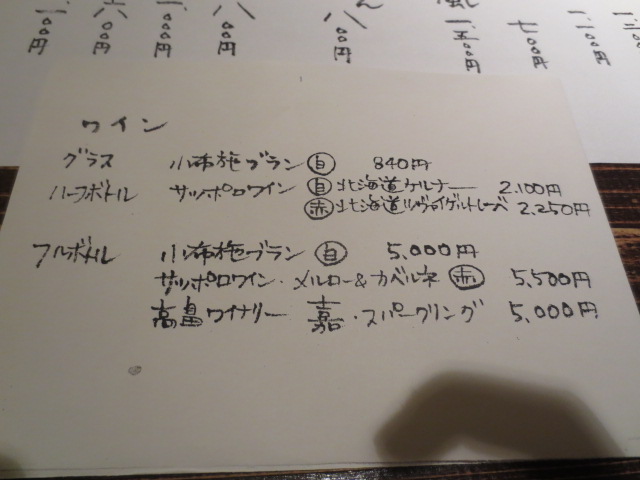 ワイン
グラス 小布施ブラン 白 840円
ハーフボトル サッポロワイン 白 北海道ケルナー 2,100円
赤 北海道ツヴァイゲルトレーベ 2,250円
フルボトル 小布施ブラン 白 5,000円
サッポロワイン・メルロー&カベルネ 赤 5,500円
高畠ワイナリー 嘉・スパークリング 5,000円